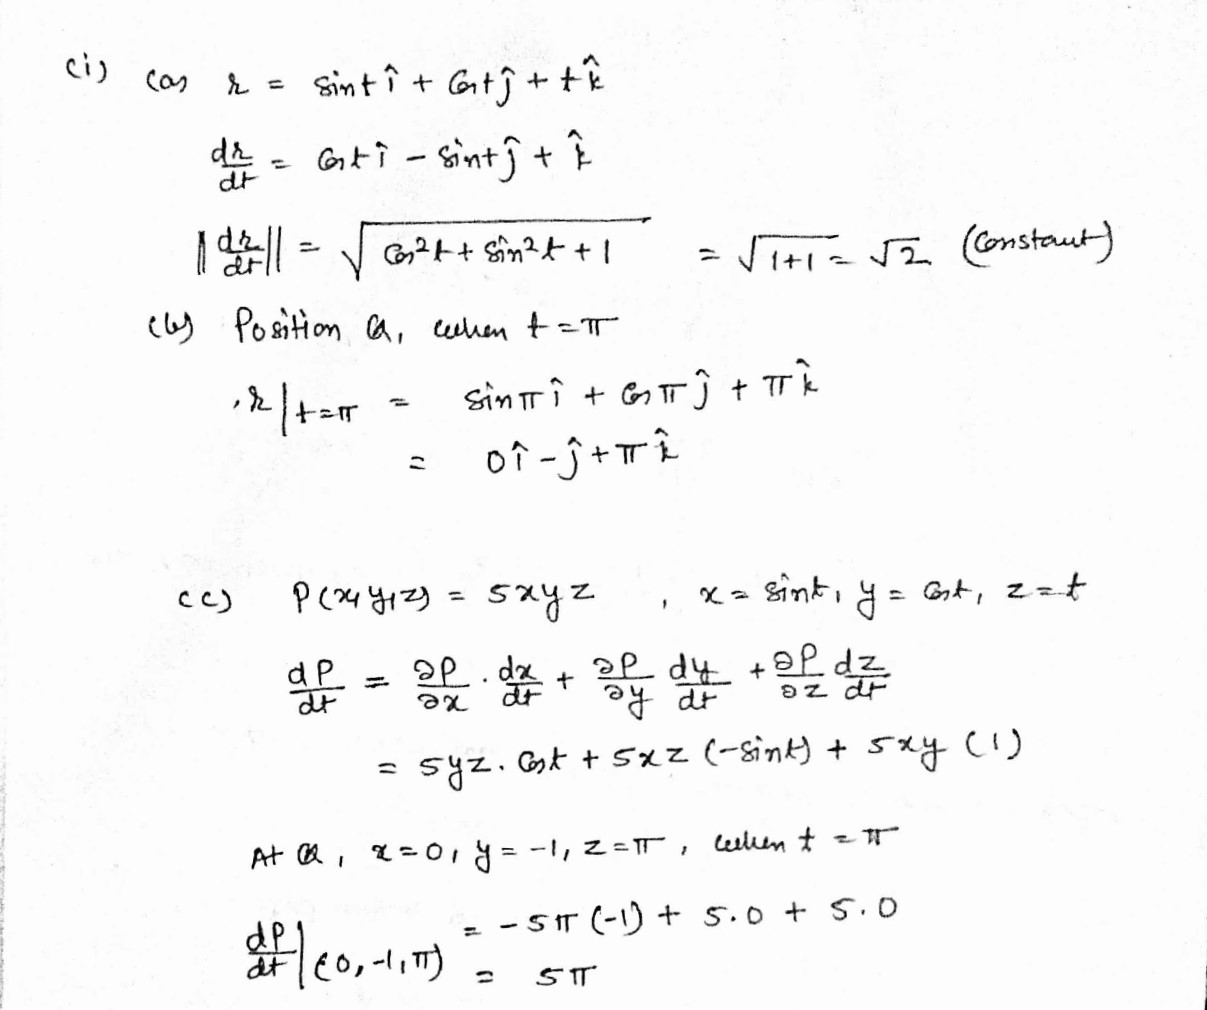 (i) (a) r = sint î + Cost ĵ + t k̂
dr/dt = Cost î - sint ĵ + k̂
||dr/dt|| = √(Cos²t + sin²t + 1) = √(1+1) = √2 (Constant)
(b) Position Q, when t = π
r|t=π = sinπ î + Cosπ ĵ + π k̂
= 0î - ĵ + π k̂
(c) P(x,y,z) = 5xyz , x = sint, y = Cost, z = t
dP/dt = ∂P/∂x · dx/dt + ∂P/∂y dy/dt + ∂P/∂z dz/dt
= 5yz. Cost + 5xz (-sint) + 5xy (1)
At Q, x=0, y=-1, z=π, when t = π
dP/dt|(0,-1,π) = -5π (-1) + 5.0 + 5.0
= 5π